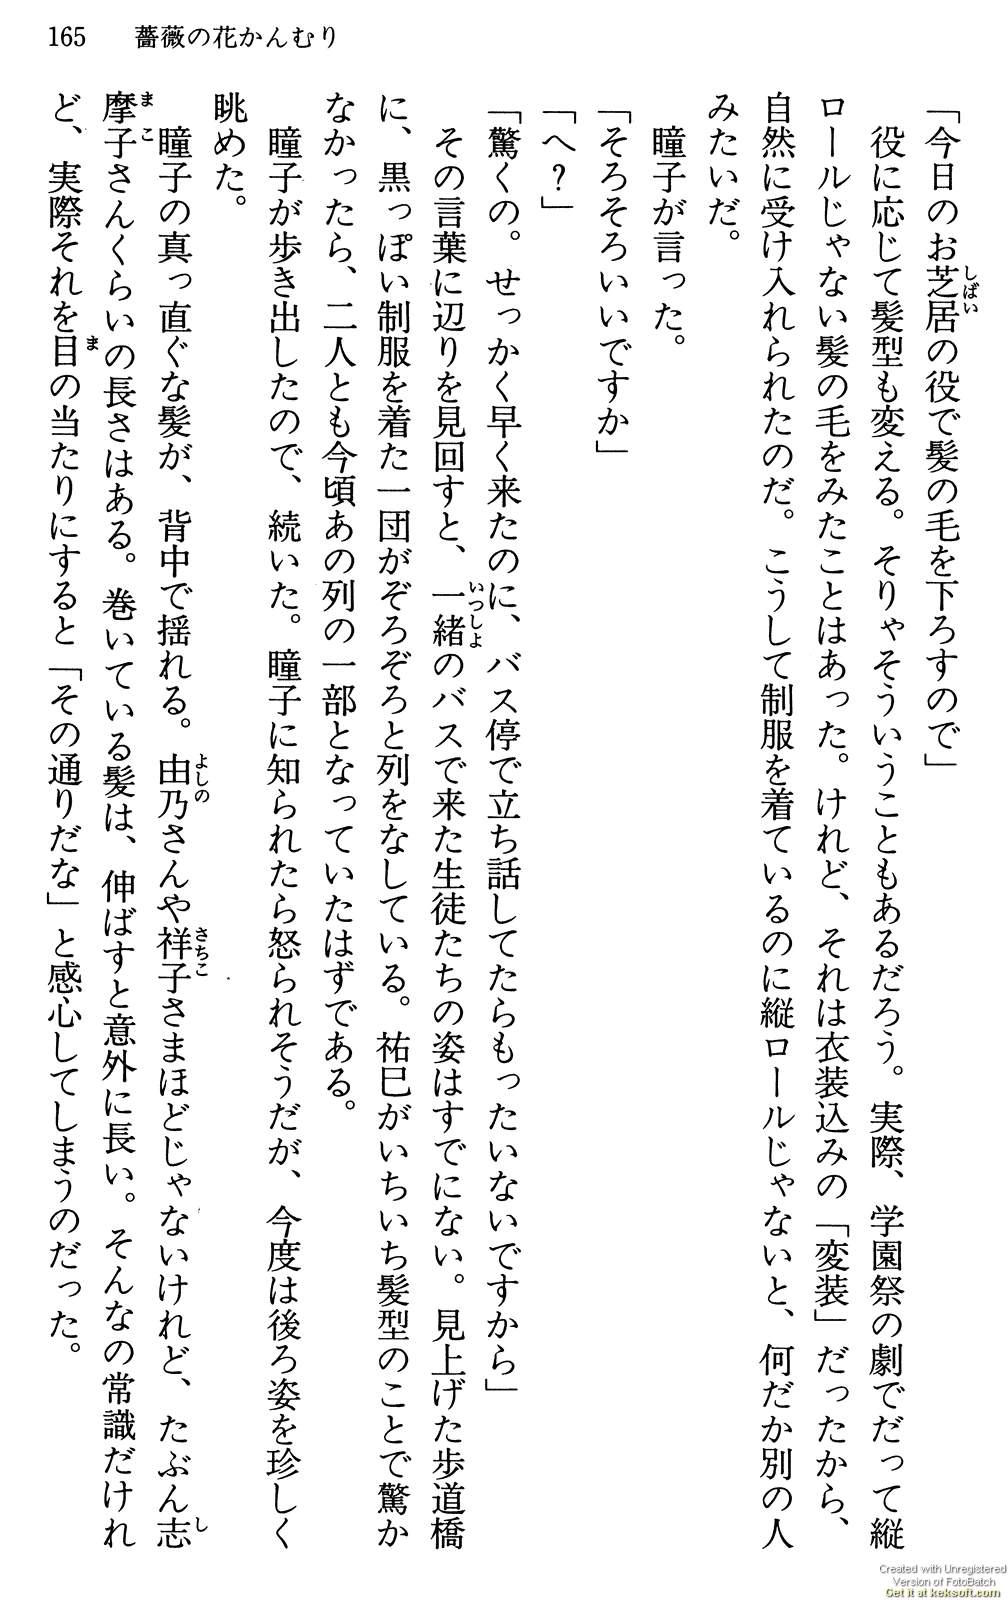 165 薔薇の花かんむり
「今日のお芝居の役で髪の毛を下ろすので」
役に応じて髪型も変える。そりゃそういうこともあるだろう。実際、学園祭の劇でだって縦
ロールじゃない髪の毛をみたことはあった。けれど、それは衣装込みの「変装」だったから、
自然に受け入れられたのだ。こうして制服を着ているのに縦ロールじゃないと、何だか別の人
みたいだ。
瞳子が言った。
「そろそろいいですか」
「へ？」
「驚くの。せっかく早く来たのに、バス停で立ち話してたらもったいないですから」
その言葉に辺りを見回すと、一緒のバスで来た生徒たちの姿はすでにない。見上げた歩道橋
に、黒っぽい制服を着た一団がぞろぞろと列をなしている。祐巳がいちいち髪型のことで驚か
なかったら、二人とも今頃あの列の一部となっていたはずである。
瞳子が歩き出したので、続いた。瞳子に知られたら怒られそうだが、今度は後ろ姿を珍しく
眺めた。
瞳子の真っ直ぐな髪が、背中で揺れる。由乃さんや祥子さまほどじゃないけれど、たぶん志
摩子さんくらいの長さはある。巻いている髪は、伸ばすと意外に長い。そんなの常識だけれ
ど、実際それを目の当たりにすると「その通りだな」と感心してしまうのだった。
Created with Unregistered
Version of FotoBatch
Get it at keksoft.com